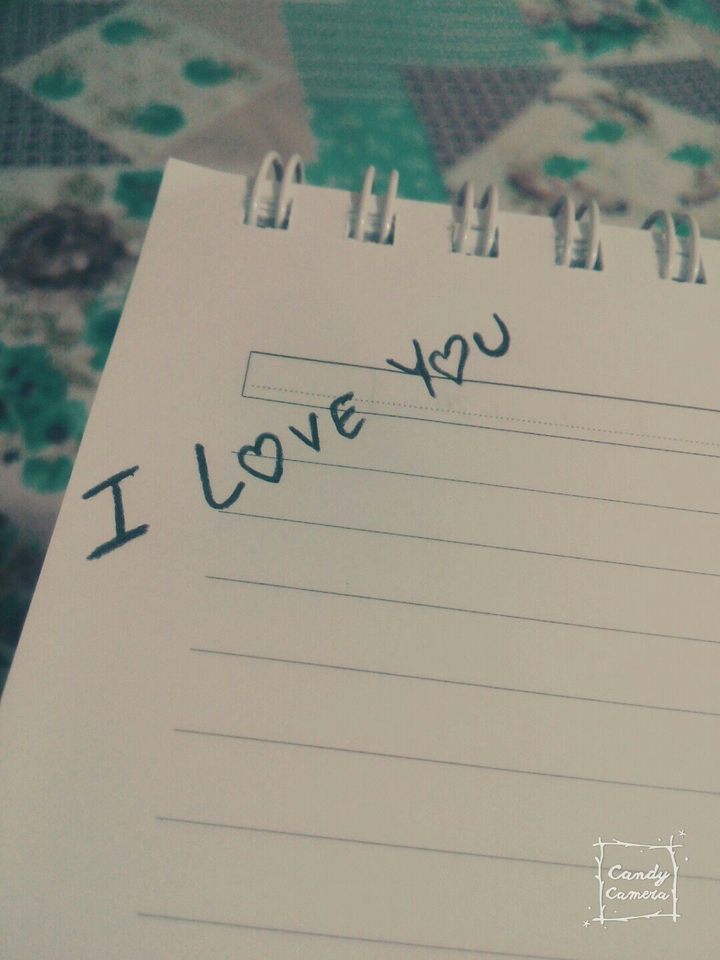 I LOVE YOU
Candy
Camera